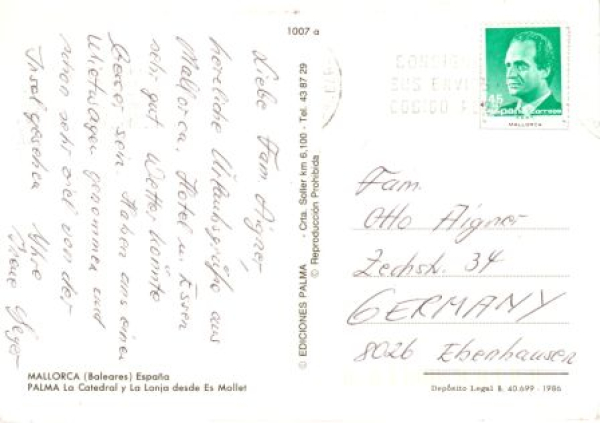 1007 a
Liebe Fam. Aigner,
herzliche Urlaubsgrüße aus
Mallorca. Hotel u. Essen
sehr gut. Wetter könnte
besser sein. Haben uns einen
Mietwagen genommen und
schon sehr viel von der
Insel gesehen. Ihre
Irene
MALLORCA (Baleares) España
PALMA La Catedral y La Lonja desde Es Mollet
© EDICIONES PALMA - Crta. Soller km 6,100 - Tel. 43 87 29
© Reproducción Prohibida
45
España Correos
MALLORCA
Fam.
Otto Aigner
Zechstr. 34
GERMANY
8026 Ebenhausen
Depósito Legal B. 40.699 - 1986